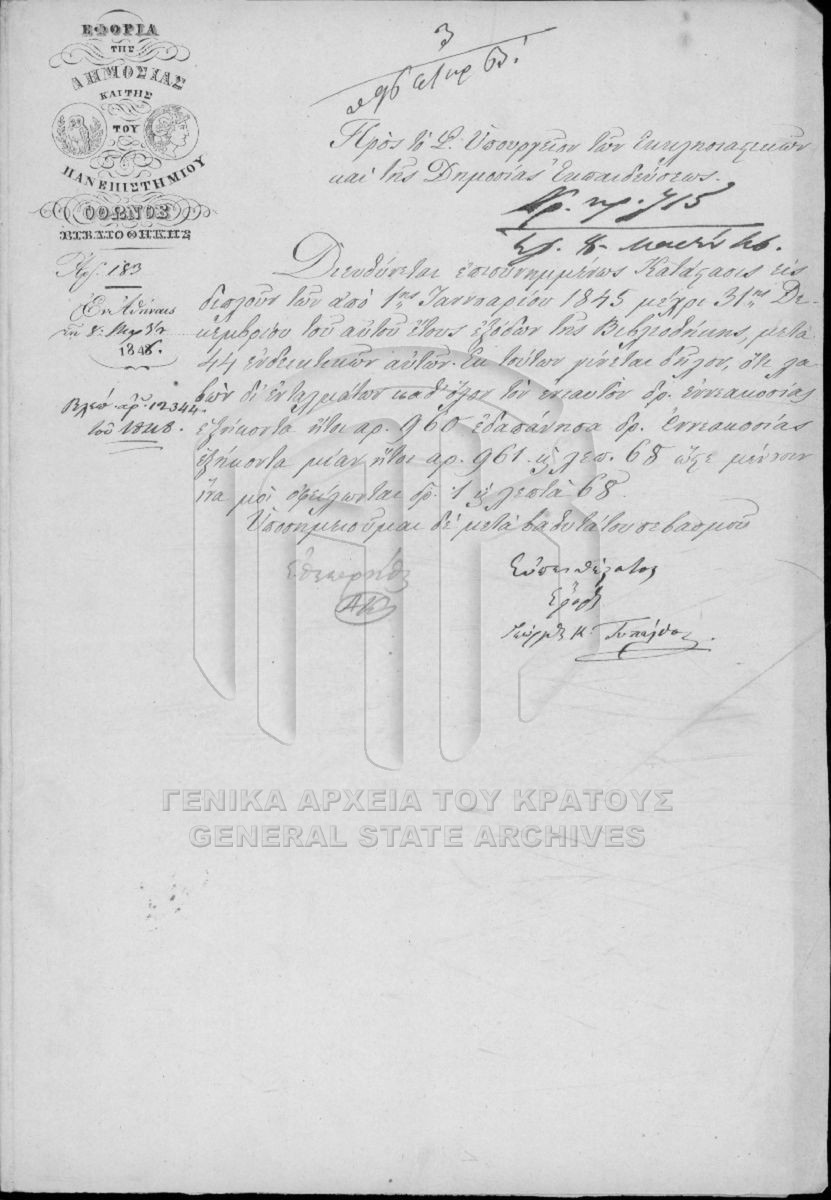 ΕΦΟΡΙΑ
ΤΗΣ
ΔΗΜΟΣΙΑΣ
ΚΑΙ ΤΗΣ
ΤΟΥ
ΠΑΝΕΠΙΣΤΗΜΙΟΥ
ΟΘΩΝΟΣ
ΒΙΒΛΙΟΘΗΚΗΣ
Ἀρ. 183
Ἐν Ἀθήναις
τῇ 8
184
12344
τοῦ 1848.
3
Πρὸς τὸ Σ. Ὑπουργεῖον τῶν Ἐκκλησιαστικῶν
καὶ τῆς Δημοσίας Ἐκπαιδεύσεως.
Ἀρ. πρ. 715
Διευθύνεται ἐπισυνημμένως Κατάστασις εἰς
διπλοῦν τῶν ἀπὸ 1ης Ἰαννουαρίου 1845 μέχρι 31ης Δε-
κεμβρίου τοῦ αὐτοῦ ἔτους ἐξόδων τῆς Βιβλιοθήκης, μετὰ
44 ἐνδεικτικῶν αὐτῶν. Ἐκ τούτων γίνεται δῆλον, ὅτι λα-
βὼν δι' ἐνταλμάτων καθ' ὅλον τὸν ἐνιαυτὸν δρ. ἐννεακοσίας
ἑξήκοντα ἤτοι αρ. 960 ἐδαπάνησα δρ. ἐννεακοσίας
ἑξήκοντα μίαν ἤτοι αρ. 961 κ λεπ. 68 ὥστε μένουσιν
ἵνα μοὶ ὀφείλωνται δρ. 1 κ λεπτὰ 68.
Ὑποσημειοῦμαι δὲ μετὰ βαθυτάτου σεβασμοῦ
Ἐθεωρήθη
Εὐπειθέστατος
Ἔφορος
Γεώργιος Κ. Τυπάλδος
ΓΕΝΙΚΑ ΑΡΧΕΙΑ ΤΟΥ ΚΡΑΤΟΥΣ
GENERAL STATE ARCHIVES